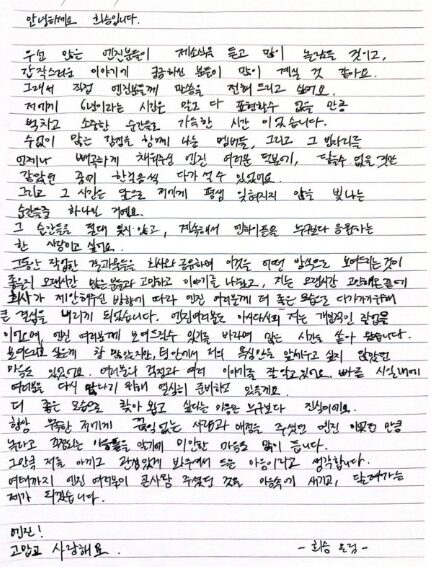 안녕하세요 희승입니다.
우선 많은 엔진분들이 제소식을 듣고 많이 놀랐을 것이고,
갑작스러운 이야기에 궁금하신 분들이 많이 계실 것 같아요.
그래서 직접 엔진분들께 말씀을 전해드리고 싶어요.
저에게 6년이라는 시간은 말로 다 표현할수 없을 만큼
벅차고 소중한 순간들로 가득한 시간이었습니다.
수없이 많은 감정을 함께 나눈 멤버들, 그리고 그 빈자리를
언제나 빼곡하게 채워주신 엔진 여러분 덕분에, 닿을수 없을 것만
같았던 꿈에 한걸음씩 다가설 수 있었어요.
그리고 그 시간은 앞으로 저에게 평생 잊혀지지 않을 빛나는
순간들중 하나일 거에요.
그 순간들을 절대 잊지않고, 계속해서 엔하이픈을 누구보다 응원하는
한 사람이고 싶어요.
그동안 작업한 결과물들을 회사와 공유하며 이것을 어떤 방식으로 보여드리는것이
좋을지 오랜시간 많은분들과 고민하고 이야기를 나눴고, 저는 오랜시간 고민해온끝에
회사가 제안해주신 방향에 따라 엔진 여러분께 더 좋은 모습으로 다가가기위해
큰 결심을 내리게 되었습니다. 엔진여러분도 아시다시피 저는 개인적인 작업을
이어오며, 엔진 여러분께 보여드릴수 있기를 바라며 많은 시간을 쏟아 왔습니다.
보여드리고 싶은게 참 많았지만, 팀 안에서 저의 욕심만을 앞세우고 싶지 않았던
마음도 있었어요. 여러분의 걱정과 여러 이야기를 잘 알고 있어요. 빠른 시일내에
여러분을 다시 만나기 위해 열심히 준비하고 있을게요.
더 좋은 모습으로 찾아 뵙고 싶다는 마음은 누구보다 진심이에요.
항상 부족한 저에게 끊임없는 사랑과 애정을 주셨던 엔진 이었던 만큼
놀라고 걱정되는 마음들을 알기에 미안한 마음도 많이 듭니다.
그만큼 저를 아끼고 관심있게 봐주셔서 드는 마음이라고 생각합니다.
여태까지 엔진 여러분이 큰사랑 주셨던 것을 마음속에 새기고, 달려가는
제가 되겠습니다.
엔진!
고맙고 사랑해요.
- 희승 올림 -